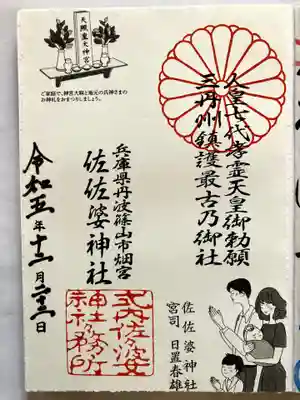 天照皇大神宮
ご家庭で、神宮大麻と地元の氏神さまの
お神札をおまつりしましょう。
人皇七代孝霊天皇御勅願
三丹州鎮護最古乃御社
兵庫県丹波篠山市畑宮
佐佐婆神社
令和五年十二月二十三日
式内佐佐婆
神社社務所
佐佐婆神社
宮司 日置春雄